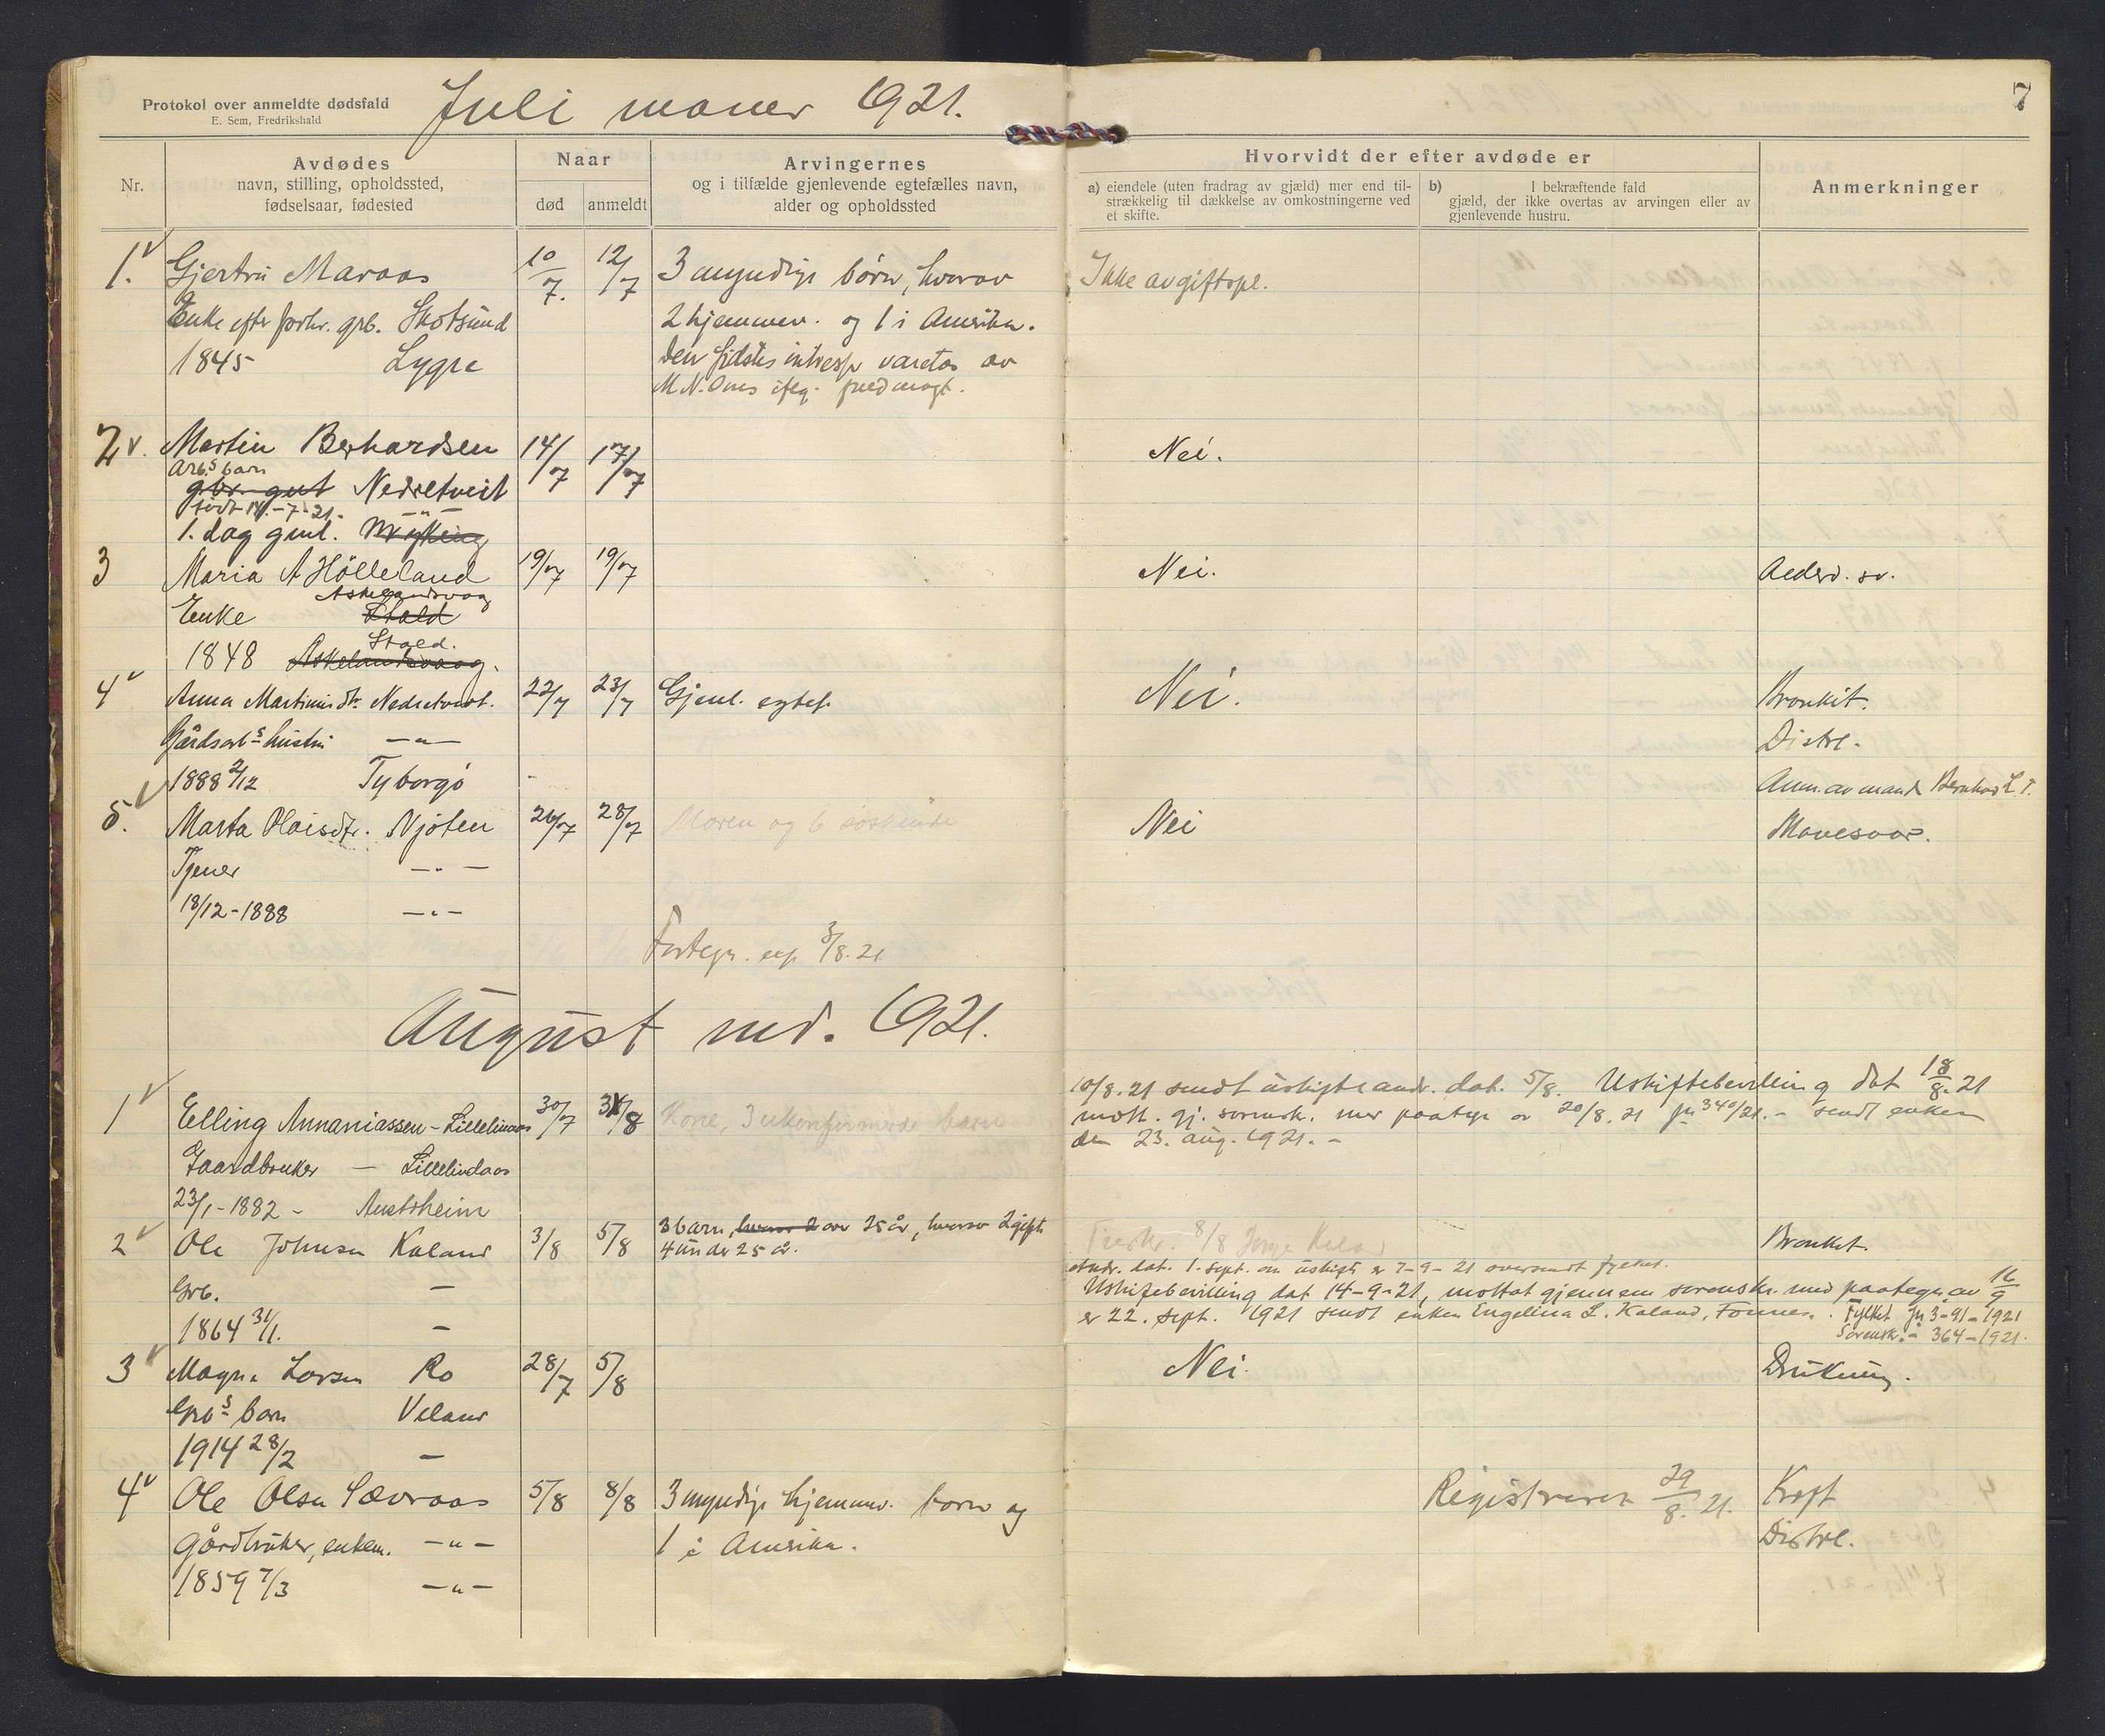 Protokol over anmeldte dødsfald
E. Sem, Fredrikshald
Juli maaned 1921.
7
Nr.
Avdødes
navn, stilling, opholdssted,
fødselsaar, fødested
Naar
død
anmeldt
Arvingernes
og i tilfælde gjenlevende egtefælles navn,
alder og opholdssted
Hvorvidt der efter avdøde er
a) eiendele (uten fradrag av gjæld) mer end til-
strækkelig til dækkelse av omkostningerne ved
et skifte.
b) I bekræftende fald
gjæld, der ikke overtas av arvingen eller av
gjenlevende hustru.
Anmerkninger
1. Gjertru Maraas 10/7. 12/7 3 myndige børn, hvorav Ikke avgiftspl.
Enke efter forhv. grb. Skotsund 2 hjemmev. og 1 i Amerika.
1845 Lygre Den sidstes varetas av
M. N.
2 Martin Berhardsen 14/7 17/7 Nei.
Arbs barn
gbr. gut Nedretveit
født 14.-7-21. -"-
1. dag gml.
3 Maria A Hölleland 19/7 19/7 Nei. Alderd. sv.
Askelandsvaag
Enke Stald
Stald.
1848 Askelandsvaag.
4 Anna Martinusdtr. Nedretveit. 22/7 23/7 Gjenl. egtef. Nei. Bronkit.
Gårdsarbs hustru -"- Distrl.
1888 2/12 Tyborgö Anm. av mand Bernhard L T.
5. Marta Olaisdtr. Njøten 26/7 28/7 Moren og 6 søskende Nei Mavesaar.
Tjener -"-
18/12-1888 -"-
Fortegn. exp. 3/8.21
August md. 1921.
1 Elling Annaniassen - Lillelindaas 30/7 3/8 Kone, 3 ukonfirmerde barn 10/8.21 sendt uskifteandr. dat. 5/8. Uskiftebevilling dat 18/8.21
mott. gj. sorensk. med paategn av 20/8.21 jn 340/21.- sendt enken
den 23. aug. 1921.-
Gaardbruker - Lillelindaas
23/1-1882 - Austrheim
2 Ole Johnsen Kaland 3/8 5/8 3 barn, hvorav 2 over 25 år, hvorav 2 gifte Bronkit.
4 under 25 år.
Andr. dat. 1. sept. om uskifte er 7-9-21 oversendt fylket.
Grb. - Uskiftebevilling dat 14-9-21, mottat gjennem sorenskr. med paategn. av 16/9
er 22. sept. 1921 sendt enken Engelina L. Kaland, Fonnes. Fylket jn 3-91-1921
Sorensk. - 364-1921.
1864 31/1. -
3 Magne Larsen Ro 28/7 5/8 Nei. Drukning.
Grbs barn Veland
1914 28/2 -
4 Ole Olsen Sævraas 5/8 8/8 3 myndige hjemmev. børn og Registreret 29/8.21. Kræft
gårdbruker, enkem. -"- 1 i Amerika. Distrl.
1859 7/3 -"-